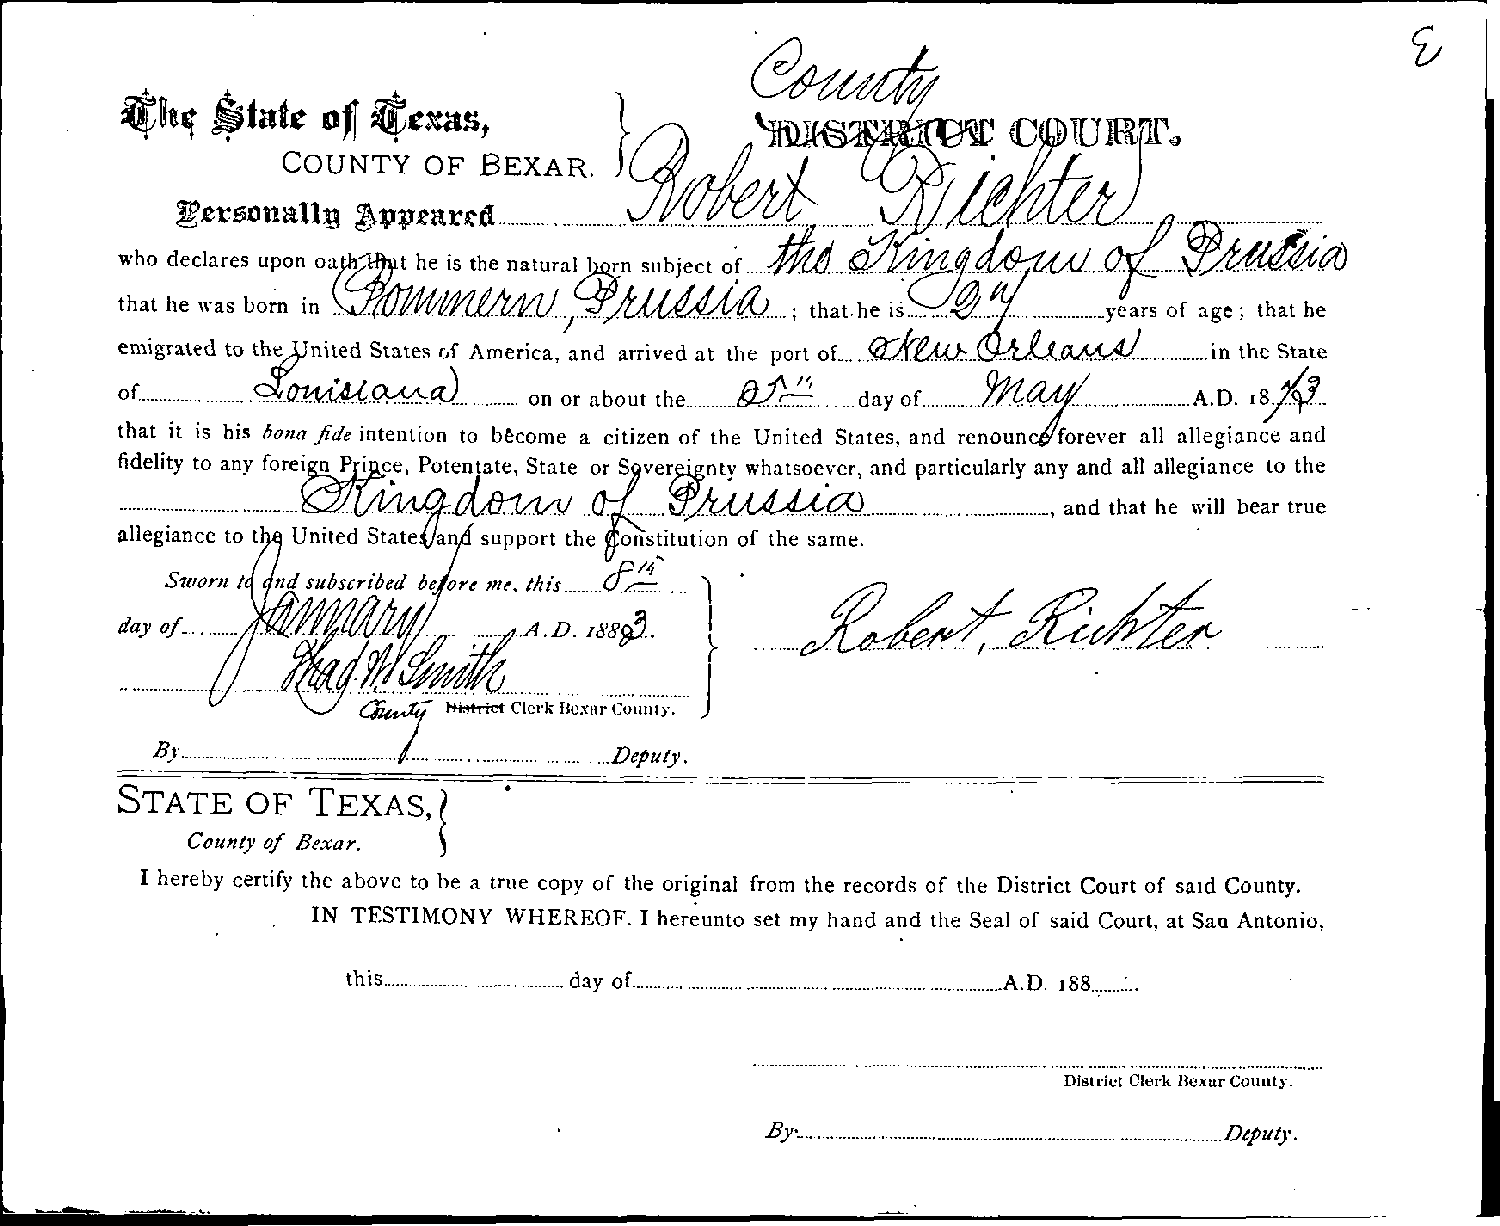 County
The State of Texas, DISTRICT COURT.
COUNTY OF BEXAR.
Personally Appeared Robert Richter
who declares upon oath that he is the natural born subject of the Kingdom of Prussia
that he was born in Pommern, Prussia ; that he is 27 years of age ; that he
emigrated to the United States of America, and arrived at the port of New Orleans in the State
of Louisiana on or about the 25th day of May A.D. 1873
that it is his bona fide intention to become a citizen of the United States, and renounce forever all allegiance and
fidelity to any foreign Prince, Potentate, State or Sovereignty whatsoever, and particularly any and all allegiance to the
Kingdom of Prussia , and that he will bear true
allegiance to the United States and support the Constitution of the same.
Sworn to and subscribed before me, this 8th
day of January A.D. 1883. Robert, Richter
Thad. M Smith
County District Clerk Bexar County.
By Deputy.
STATE OF TEXAS,
County of Bexar.
I hereby certify the above to be a true copy of the original from the records of the District Court of said County.
IN TESTIMONY WHEREOF. I hereunto set my hand and the Seal of said Court, at San Antonio,
this day of A.D. 188
District Clerk Bexar County.
By Deputy.